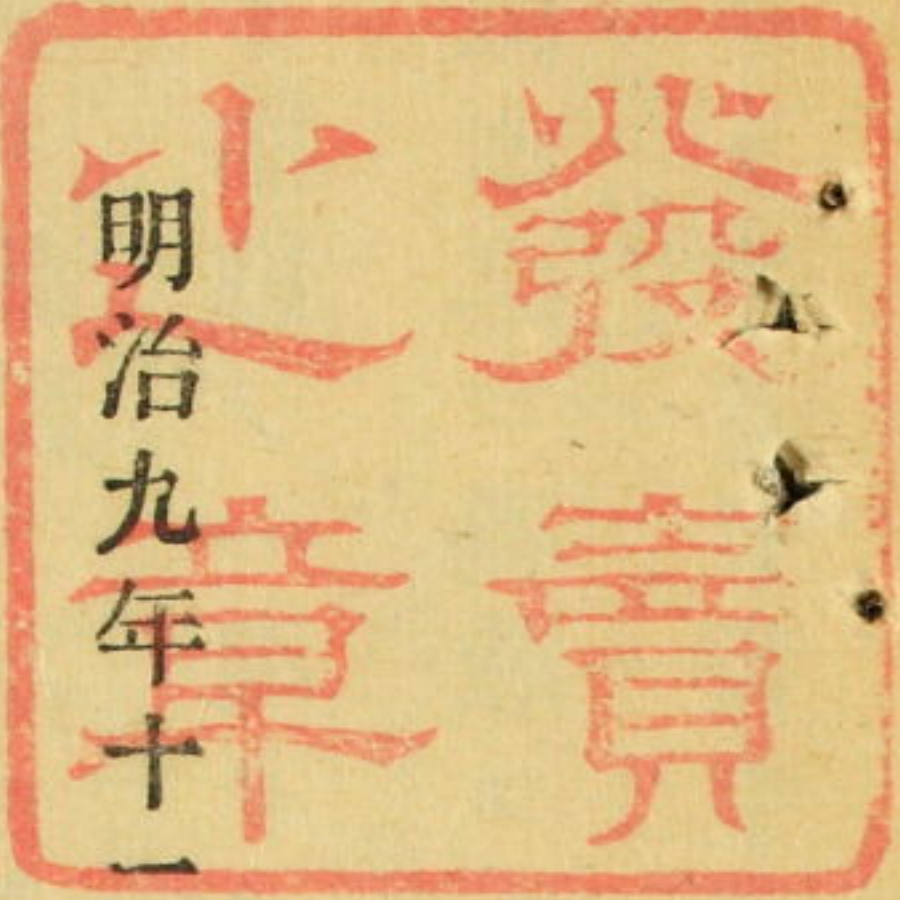 發賣
之章
明治九年十一